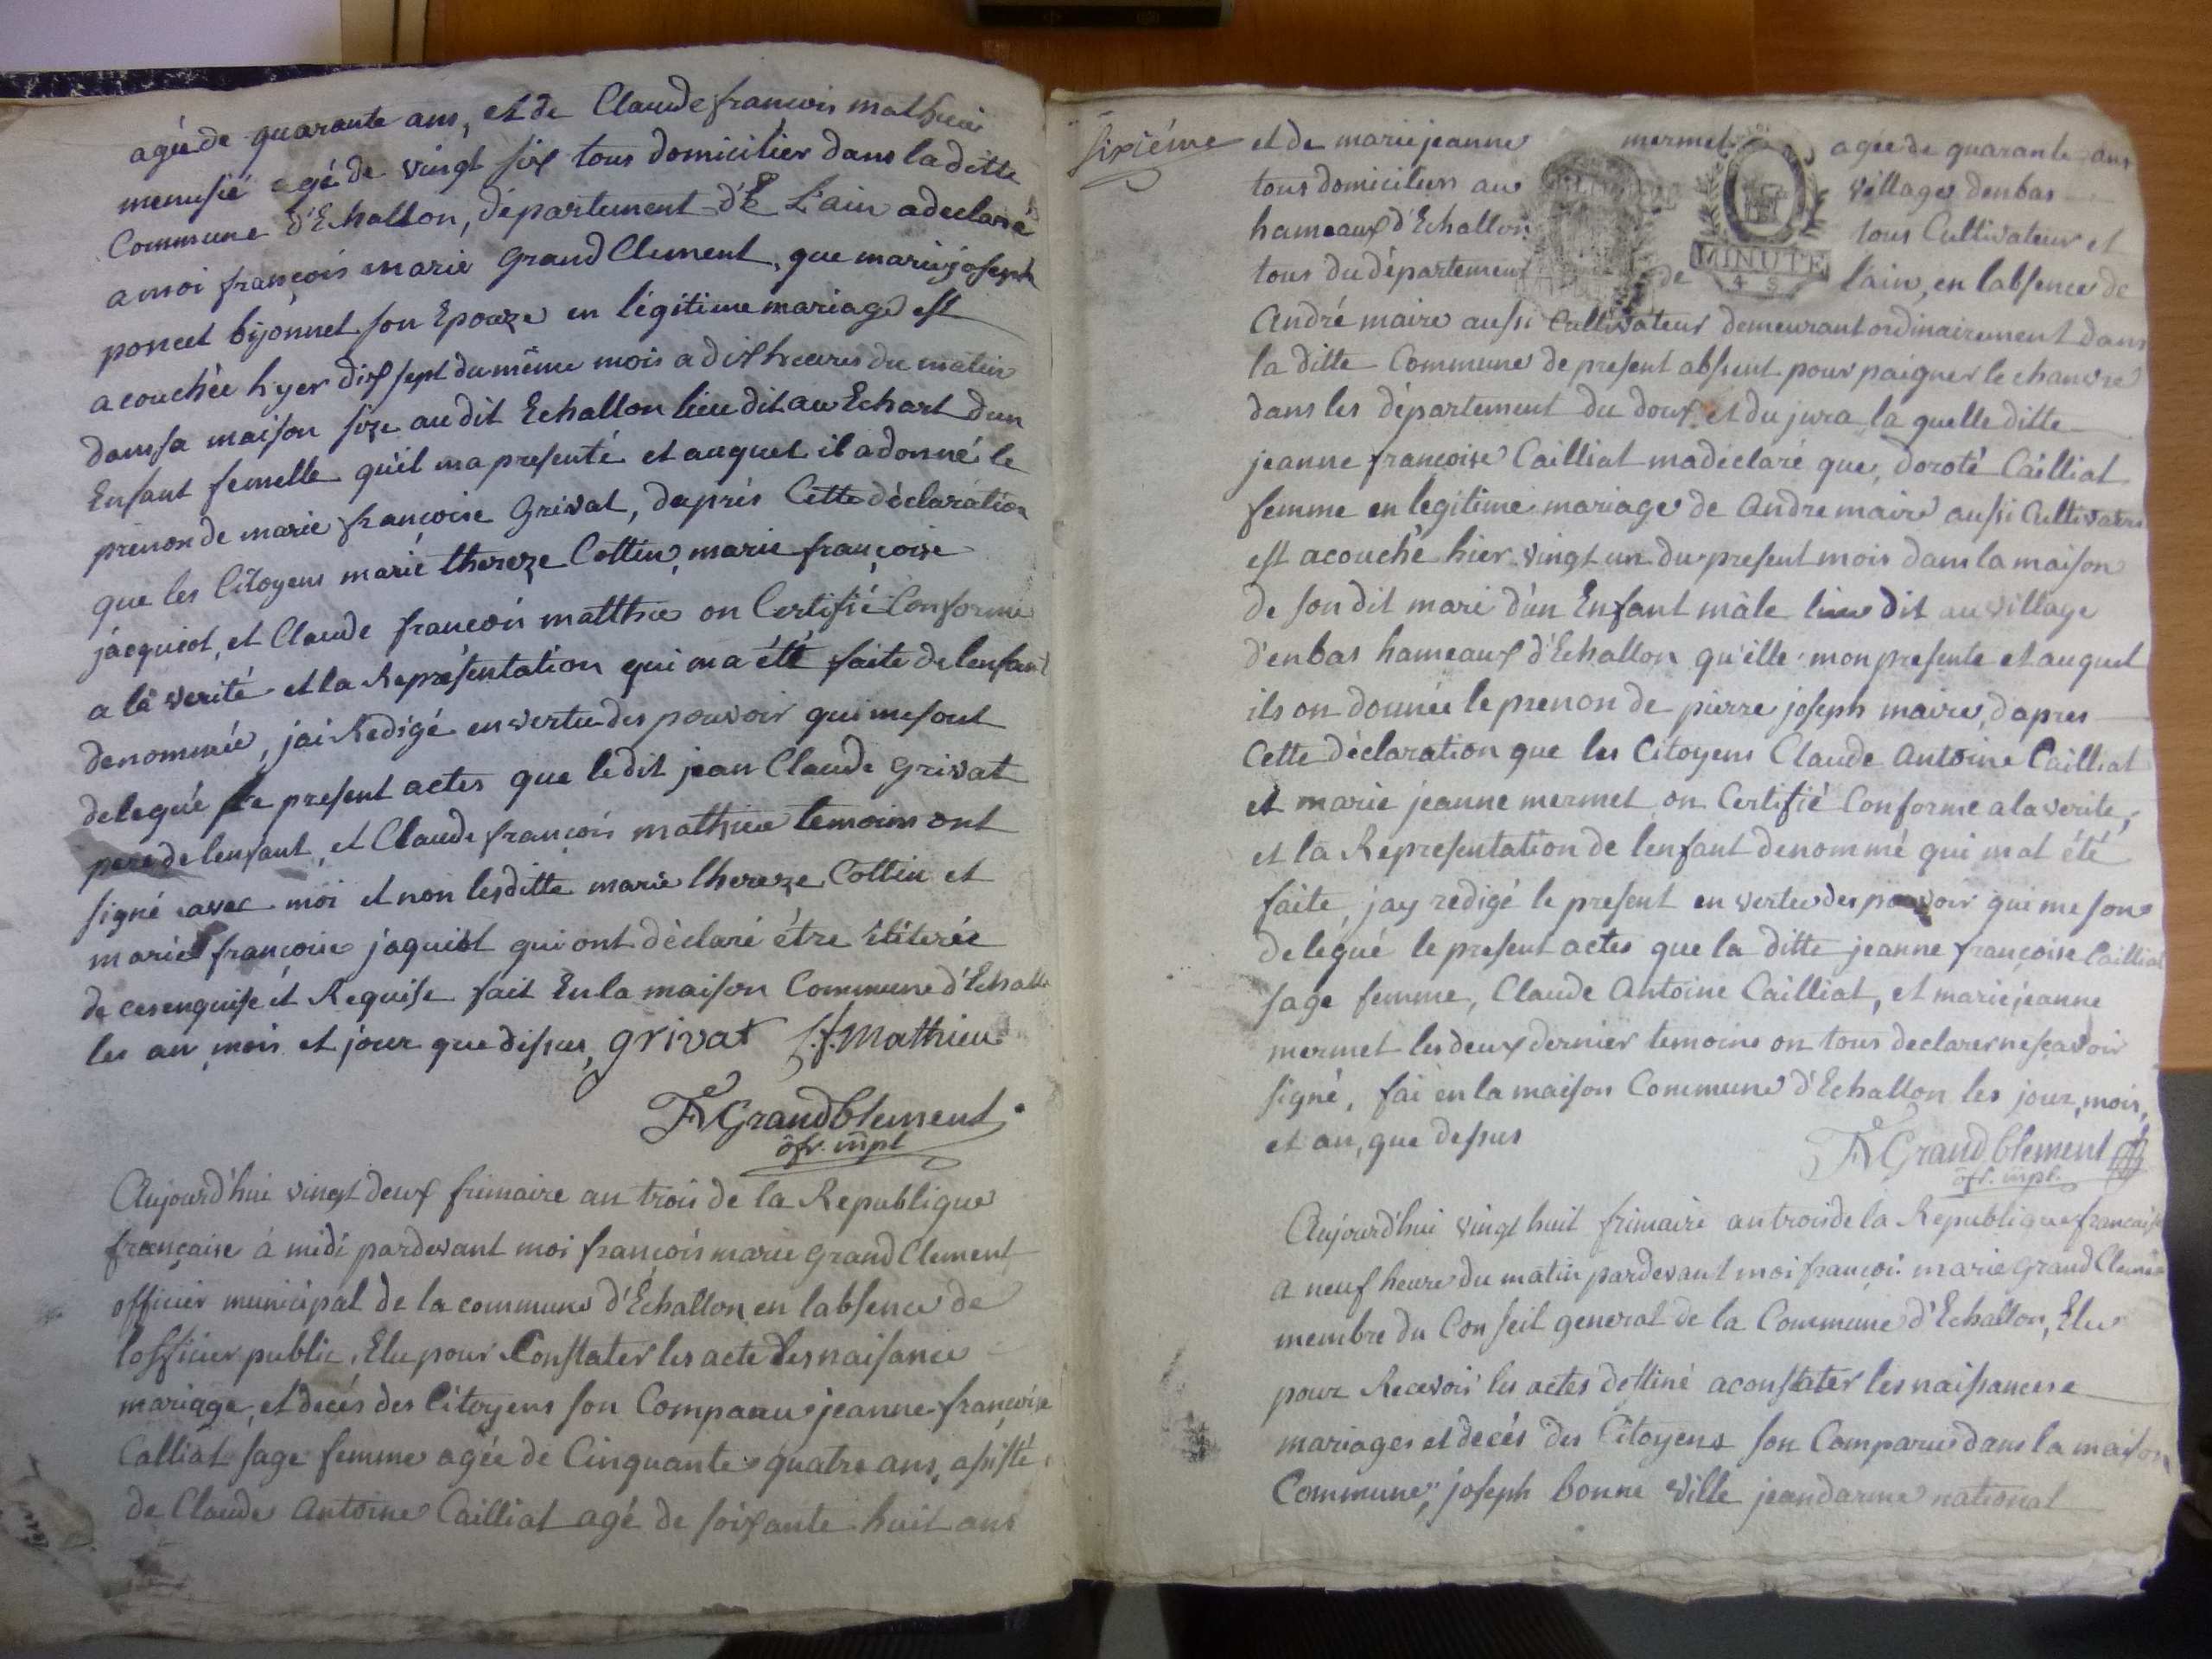 agée de quarante ans, et de Claude francois mathieu
menusié agé de vingt six tous domicilier dans la ditte
Commune d'Echallon, département dE L'ain a declaré
a moi françois marie Grand Clement, que marie joseph
poncet bijonnet son Epouze en légitime mariage est
acouchée hyer dix sept du même mois a dix heures du matin
dans sa maison size au dit Echallon lieu dit au Echart dun
Enfant femelle qu'il ma presenté et auquel il a donné le
prenon de marie françoise Grivat, daprés Cette déclaration
que les Citoyens marie thereze Cottin, marie françoise
jacquiot, et Claude francois matthie on Certifié Conforme
a la verité et la Représentation qui ma été faite de lenfant
denommée, jai Redigé en vertu des pouvoir qui me sont
delegué le present actes que le dit jean Claude Grivat
pere de lenfant, et Claude françois mathieu temoins ont
signé avec moi et non lesditte marie thereze Cottin et
marie françoise jaquiot qui ont déclaré étre iliterée
de ces enquise et Requise fait En la maison Commune d'Echallo
les an mois et jour que dessus, grivat Cf. Mathieu
F GrandClement
ofr. mpl
Aujourd'hui vingt deux frimaire an trois de la Republique
françaize à midi pardevant moi françois marie Grand Clement
officier municipal de la commune d'Échallon en labsence de
lofficier public, Elu pour Constater les acte des naisance
mariage, et decés des Citoyens son Comparu jeanne françoise
Calliat sage femme agée de Cinquante quatre ans, asisté
de Claude Antoine Cailliat agé de soixante huit ans
Sixiéme
et de marie jeanne mermet agée de quarante ans
tous domicilies au village denbas
hameaux d'Echallon tous Cultivateur et
tous du département de lain, en labsence de
MINUTE
4 S
André maire aussi Cultivateur demeurant ordinairement dans
la ditte Commune de present absent pour paigner le chanvre
dans les département du doux et du jura la quelle ditte
jeanne françoise Cailliat ma declaré que, doroté Cailliat
femme en legitime mariage de Andre maire aussi Cultivateur
est acouché hier vingt un du present mois dans la maison
de son dit mari d'un Enfant mâle lieu dit au village
d'enbas hameaux d'Echallon qu'elle mon presente et auquel
ils on donnée le prenon de pierre joseph maire, dapres
Cette déclaration que les Citoyens Claude Antoine Cailliat
et marie jeanne mermet on Certifié Conforme a la verite,
et la Representation de lenfant denommé qui mat été
faite, jay redigé le present en vertu des pouvoir qui me son
delegué le present actes que la ditte jeanne françoise Cailliat
sage femme, Claude Antoine Cailliat, et marie jeanne
mermet les deux dernier temoins on tous declarer ne sçavoir
signé, fai en la maison Commune d'Echallon les jour, mois,
et an, que dessus
F GrandClement
ofr. mpl.
Aujourd'hui vingt huit frimaire an trois de la Republique française
a neuf heure du matin pardevant moi françoi. marie Grand Clement
membre du Conseil general de la Commune d'Echallon, Elu
pour Recevoir les actes destiné a constater les naissances
mariages et decés des Citoyens son Comparus dans la maison
Commune, joseph bonne ville jeandarme national